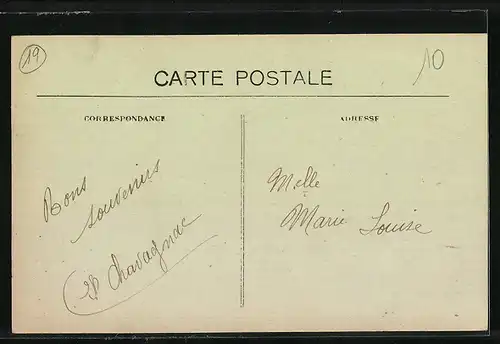 19
10
CARTE POSTALE
CORRESPONDANCE
ADRESSE
Bons
souvenirs
Chavagnac
Melle
Marie Louise